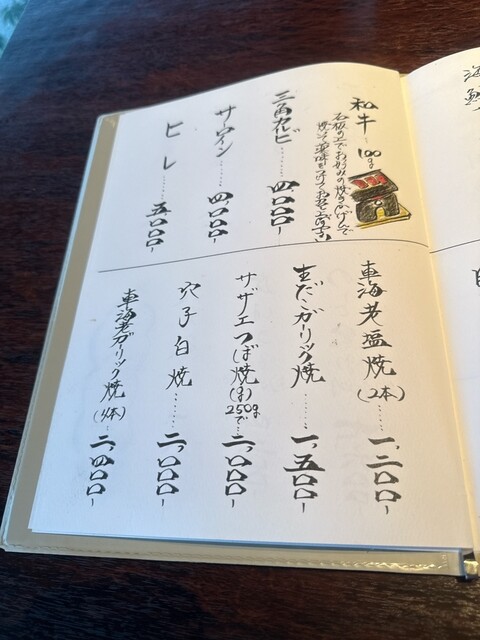 和牛 100g
石板の上でお好みの焼きかげんで
焼いて薬味をつけてお召し上がり下さい
三角カルビ……四、〇〇〇-
サーロイン……四、〇〇〇-
ヒレ……五、〇〇〇-
車海老塩焼(2本)……一、二〇〇-
生だこガーリック焼……一、五〇〇-
サザエつぼ焼(1ヶ)250gまで…二、〇〇〇-
穴子白焼……二、〇〇〇-
車海老ガーリック焼(4本)…二、四〇〇-
海鮮